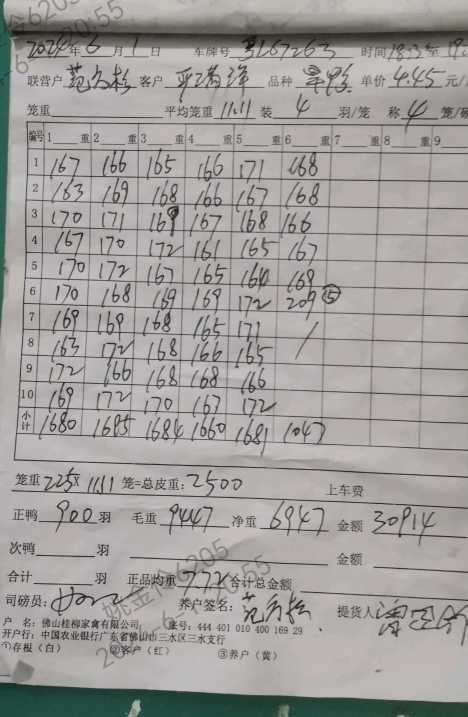 2024年6月1日 车牌号 时间18:3 至19
联营户 范 客户 品种 单价4.45元/
笼重 平均笼重11.11装4羽/笼 称4笼/
编号 1 重 2 重 3 重 4 重 5 重 6 重 7 重 8 重 9
1 167 166 165 166 171 168
2 163 169 168 166 167 168
3 170 171 169 167 168 166
4 167 170 172 161 165 167
5 170 172 167 165 164 169
6 170 168 169 169 172 209 ⑤
7 169 169 168 165 171 /
8 163 172 168 166 165
9 172 166 168 168 166
10 169 172 170 167 172
小计 1680 1695 1684 1660 1681 1047
笼重225×11.11笼=总皮重:2500 上车费
正鸭900羽 毛重9447净重6947金额30914
次鸭 羽 金额
合计 羽 正品均重7.72合计总金额
司磅员: 养户签名:范 提货人
户 名:佛山桂柳家禽有限公司 账号:444 401 010 400 169 29
开户行:中国农业银行广东省佛山市三水区三水支行
①存根(白) ②客户(红) ③养户(黄)
姚金令6205